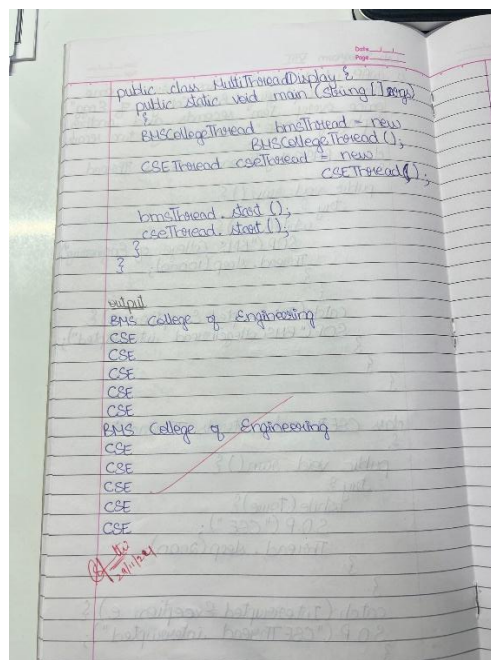 Date
Page
public class MultiThreadDisplay {
public static void main (String [] args)
{
BMSCollegeThread bmsThread = new
BMSCollegeThread ();
CSEThread cseThread = new
CSEThread ();
bmsThread. start ();
cseThread. start ();
}
}
output
BMS College of Engineering
CSE
CSE
CSE
CSE
CSE
BMS College of Engineering
CSE
CSE
CSE
CSE
CSE